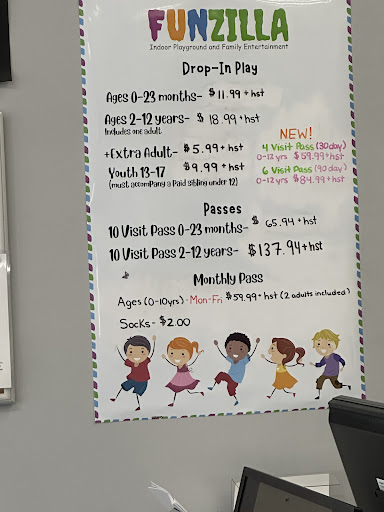 FUNZILLA
Indoor Playground and Family Entertainment
Drop-In Play
Ages 0-23 months- $11.99 + hst
Ages 2-12 years- $ 18.99 + hst
Includes one adult
+Extra Adult- $5.99 + hst
Youth 13-17 $9.99 + hst
(must accompany a Paid sibling under 12)
NEW!
4 Visit Pass (30 day)
0-12 yrs $59.99 + hst
6 Visit Pass (90 day)
0-12 yrs $84.99 + hst
Passes
10 Visit Pass 0-23 months- $ 65.94 + hst
10 Visit Pass 2-12 years- $137.94 + hst
Monthly Pass
Ages (0-10yrs) - Mon-Fri $59.99 + hst (2 adults included)
Socks- $2.00